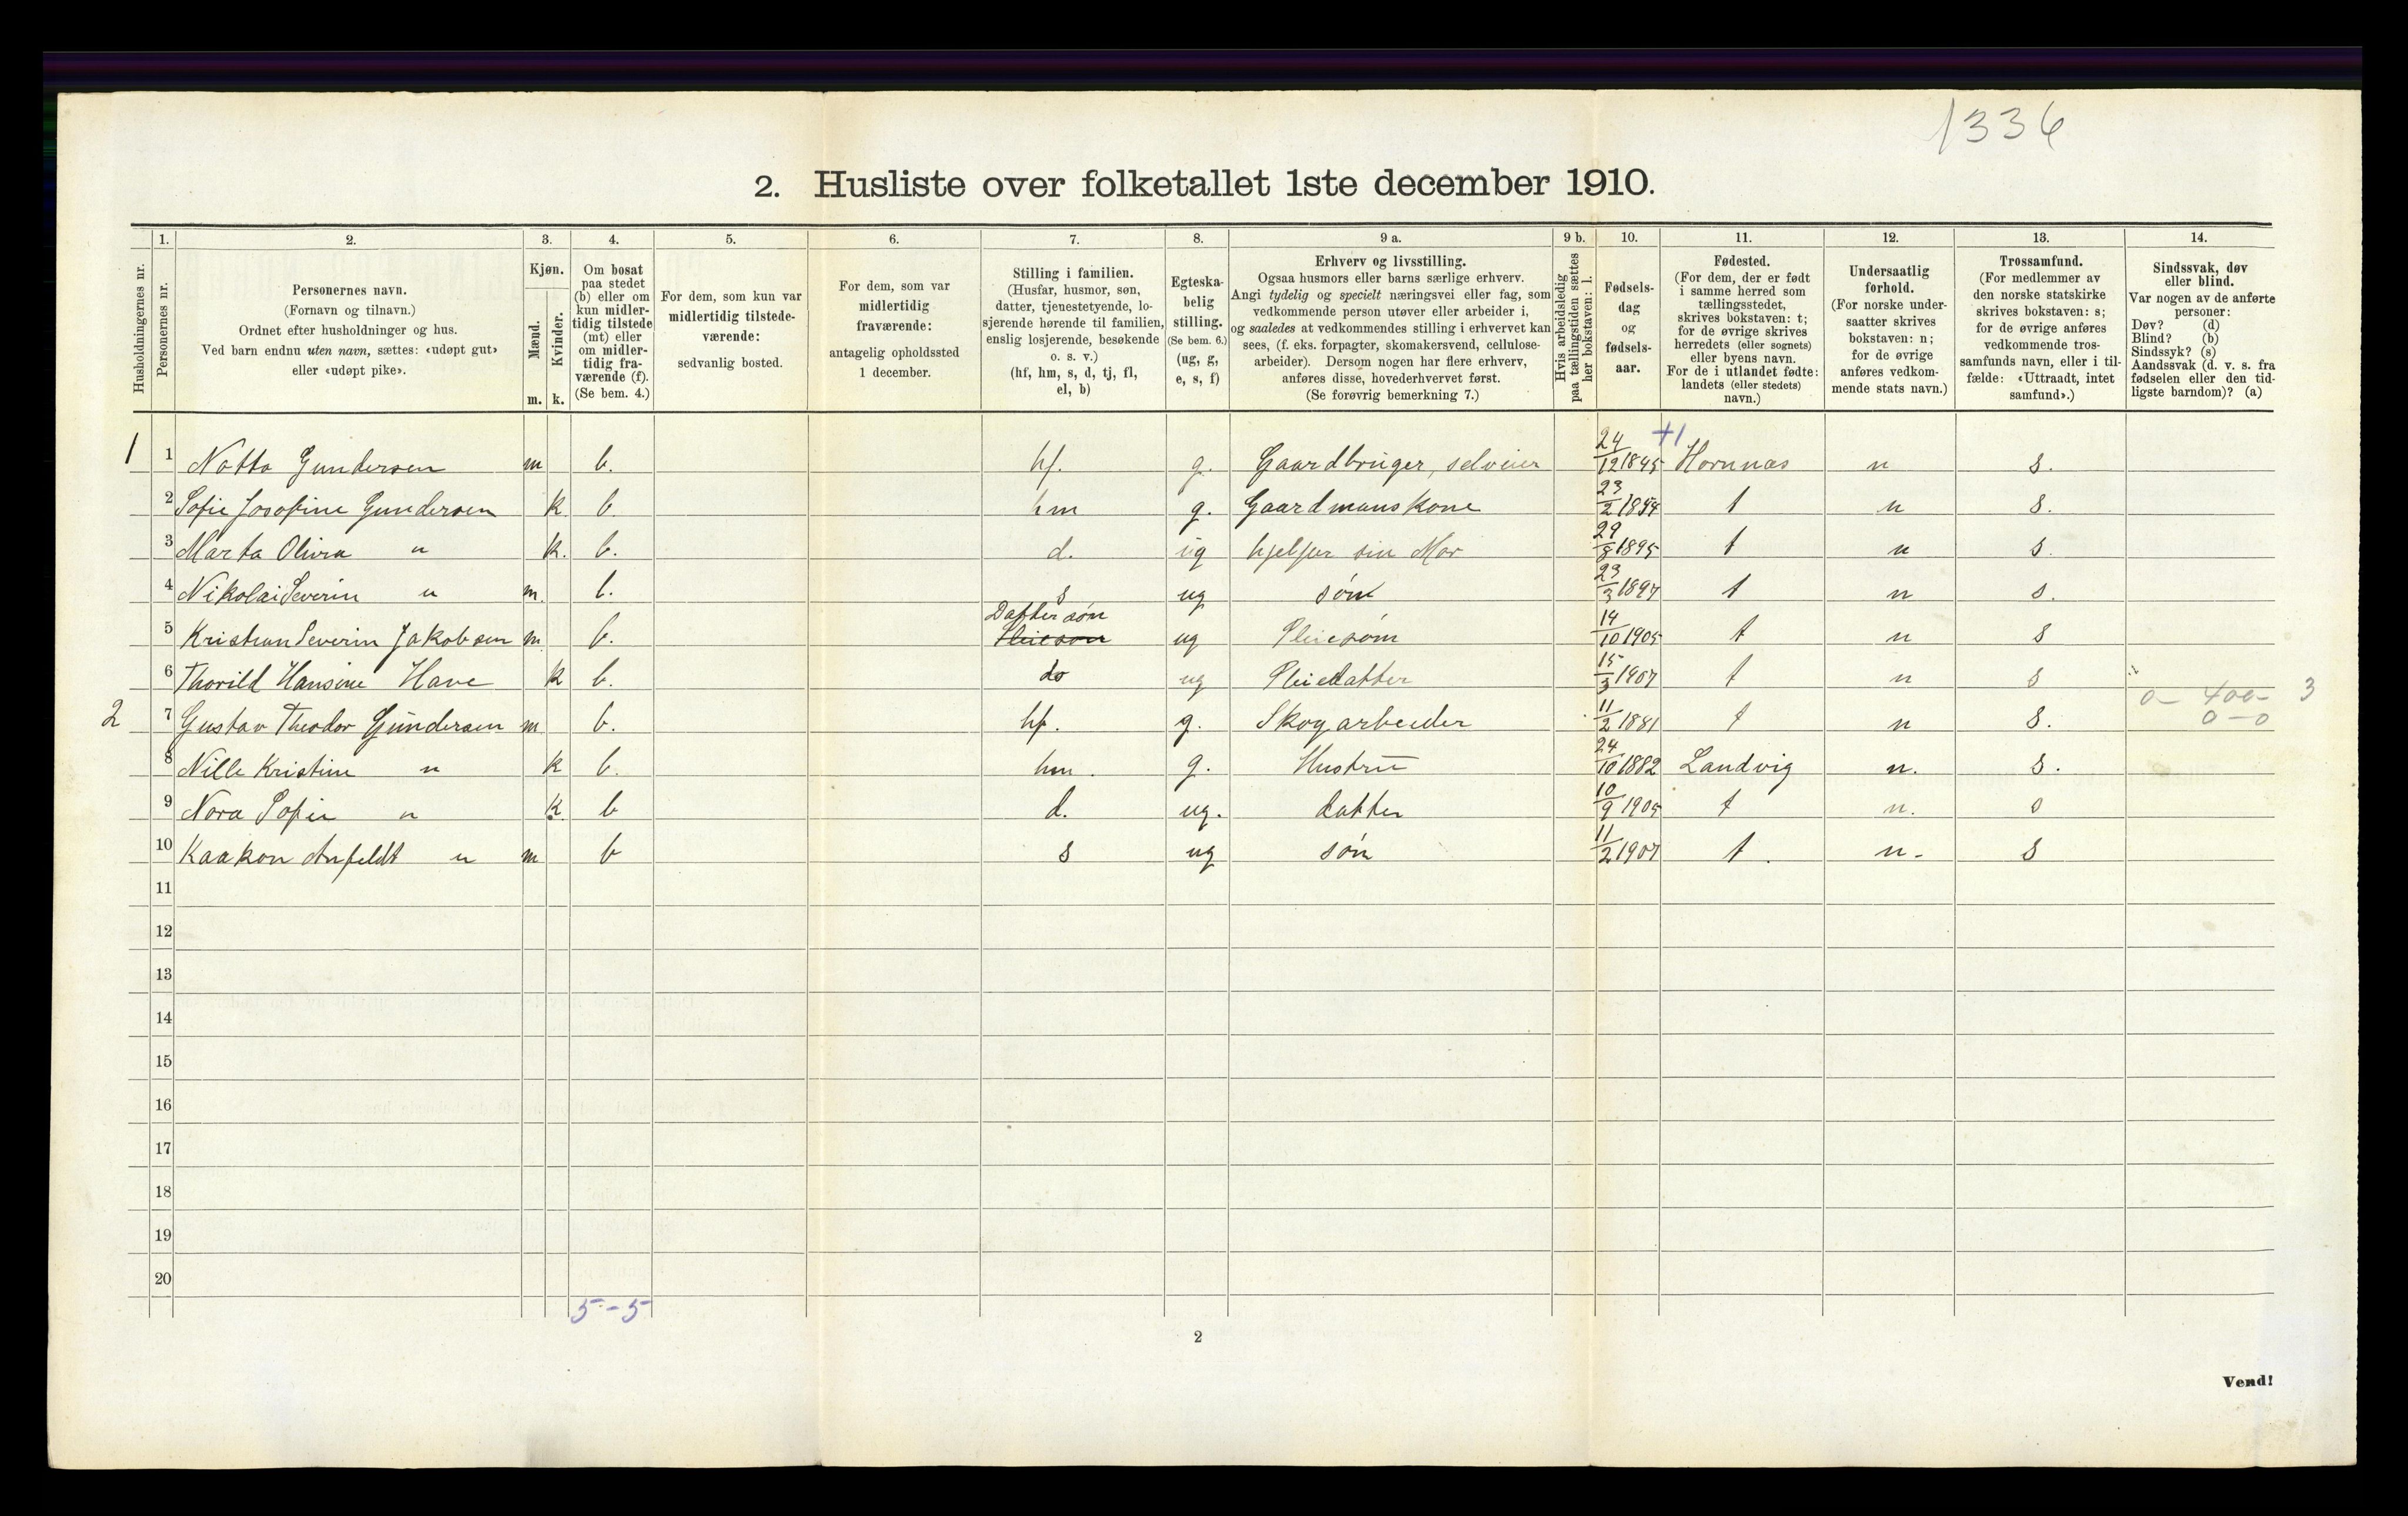 1336
2. Husliste over folketallet 1ste december 1910.
Husholdningernes nr.
1.
Personernes nr.
2.
Personernes navn.
(Fornavn og tilnavn.)
Ordnet efter husholdninger og hus.
Ved barn endnu uten navn, sættes: «udøpt gut»
eller «udøpt pike».
3.
Kjøn.
Mænd.
Kvinder.
m. k.
4.
Om bosat
paa stedet
(b) eller om
kun midler-
tidig tilstede
(mt) eller
om midler-
tidig fra-
værende (f).
(Se bem. 4.)
5.
For dem, som kun var
midlertidig tilstede-
værende:
sedvanlig bosted.
6.
For dem, som var
midlertidig
fraværende:
antagelig opholdssted
1 december.
7.
Stilling i familien.
(Husfar, husmor, søn,
datter, tjenestetyende, lo-
sjerende hørende til familien,
enslig losjerende, besøkende
o. s. v.)
(hf, hm, s, d, tj, fl,
el, b)
8.
Egteska-
belig
stilling.
(Se bem. 6.)
(ug, g,
e, s, f)
9 a.
Erhverv og livsstilling.
Ogsaa husmors eller barns særlige erhverv.
Angi tydelig og specielt næringsvei eller fag, som
vedkommende person utøver eller arbeider i,
og saaledes at vedkommendes stilling i erhvervet kan
sees, (f. eks. forpagter, skomakersvend, cellulose-
arbeider). Dersom nogen har flere erhverv,
anføres disse, hovederhvervet først.
(Se forøvrig bemerkning 7.)
9 b.
Hvis arbeidsledig
paa tællingstiden sættes
her bokstaven: l.
10.
Fødsels-
dag
og
fødsels-
aar.
11.
Fødested.
(For dem, der er født
i samme herred som
tællingsstedet,
skrives bokstaven: t;
for de øvrige skrives
herredets (eller sognets)
eller byens navn.
For de i utlandet fødte:
landets (eller stedets)
navn.)
12.
Undersaatlig
forhold.
(For norske under-
saatter skrives
bokstaven: n;
for de øvrige
anføres vedkom-
mende stats navn.)
13.
Trossamfund.
(For medlemmer av
den norske statskirke
skrives bokstaven: s;
for de øvrige anføres
vedkommende tros-
samfunds navn, eller i til-
fælde: «Uttraadt, intet
samfund».)
14.
Sindssvak, døv
eller blind.
Var nogen av de anførte
personer:
Døv? (d)
Blind? (b)
Sindssyk? (s)
Aandssvak (d. v. s. fra
fødselen eller den tid-
ligste barndom)? (a)
1 1 Notto Gundersen m b. hf. g. Gaardbruger, selveier 24/12 1845 +1 Hornnas n s.
2 Sofie Josofine Gundersen k b. hm g. Gaardmanskone 23/2 1854 t n s.
3 Marta Olivia " k. b. d. ug hjelper sin Mor 29/8 1895 t n s.
4 Nikolai Severin " m. b. s ug søn 23/3 1897 t n s.
5 Kristian Severin Jakobsen m b. Dattersøn Pleiesøn ug Pleiesøn 14/10 1905 t n s
6 Thorild Hansine Have k b. do ug Pleiedatter 15/3 1907 t n s
2 7 Gustav Theodor Gundersen m b. hf. g. Skogarbeider 11/2 1881 t n s. 0- 400- 3
0-0
8 Nille Kristine " k b. hm. g. Hustru 24/10 1882 Landvig n. s.
9 Nora Sofie " k. b d. ug. datter 10/9 1905 t n. s
10 Haakon Anfeldt " m b s ug søn 11/2 1907 t. n- s
11
12
13
14
15
16
17
18
19
20
5-5
2
Vend!